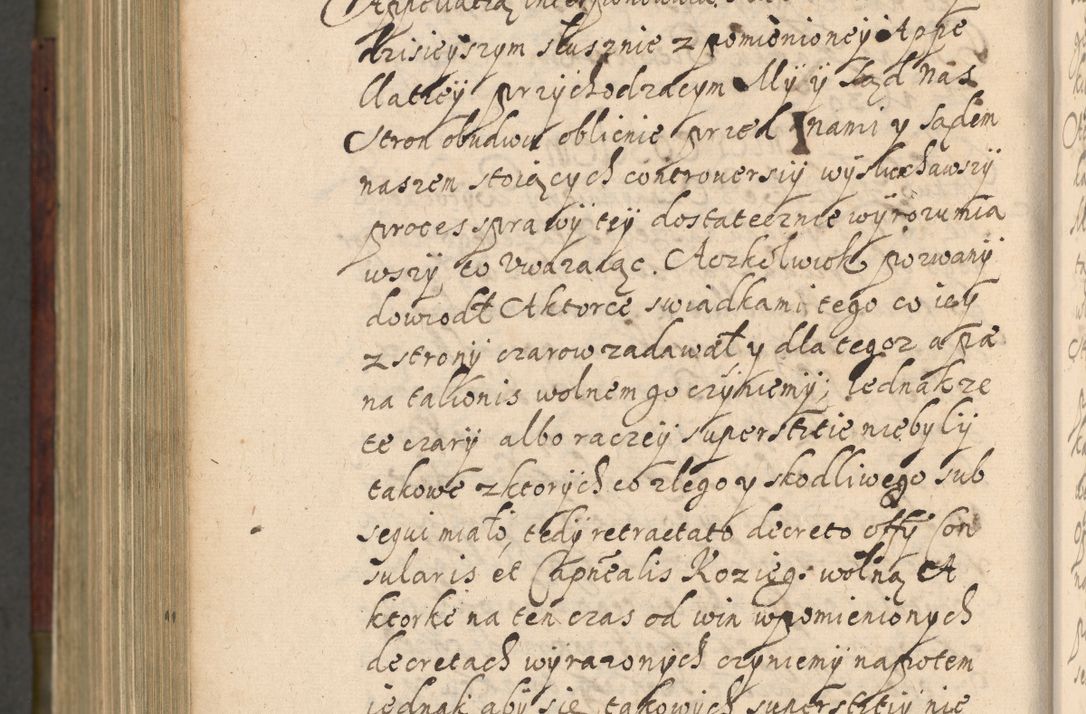 Appellatią interponowaną
dzisieyszym słusznie z pomienioney Appe
llatiey przychodzącym My y Sąd nas
stron obudwu oblicnie przed nami y sądem
naszem stoiących controuersiÿ wÿsłuchawszÿ
proces sprawÿ teÿ dostatecznie wÿrozumia
wszÿ to vwazaiąc. Aczkolwiek pozwanÿ
dowiodł Aktorce swiadkami tego co ieÿ
z stronÿ czarow zadawał y dla tegoz a pæ
na talionis wolnem go czÿniemÿ; Iednakze
te czarÿ albo raczeÿ superstitie niebylÿ
takowe z ktorÿch co zlego y skodliwego sub
sequi miało, tedÿ retractato decreto offÿ Con
sularis et Capnealis Kozieg. wolną A
ktorkę na ten czas od win w pomienionÿch
decretach wÿrazonÿch czÿniemÿ napotem
iednak abÿ się takowÿch superstitiÿ nie